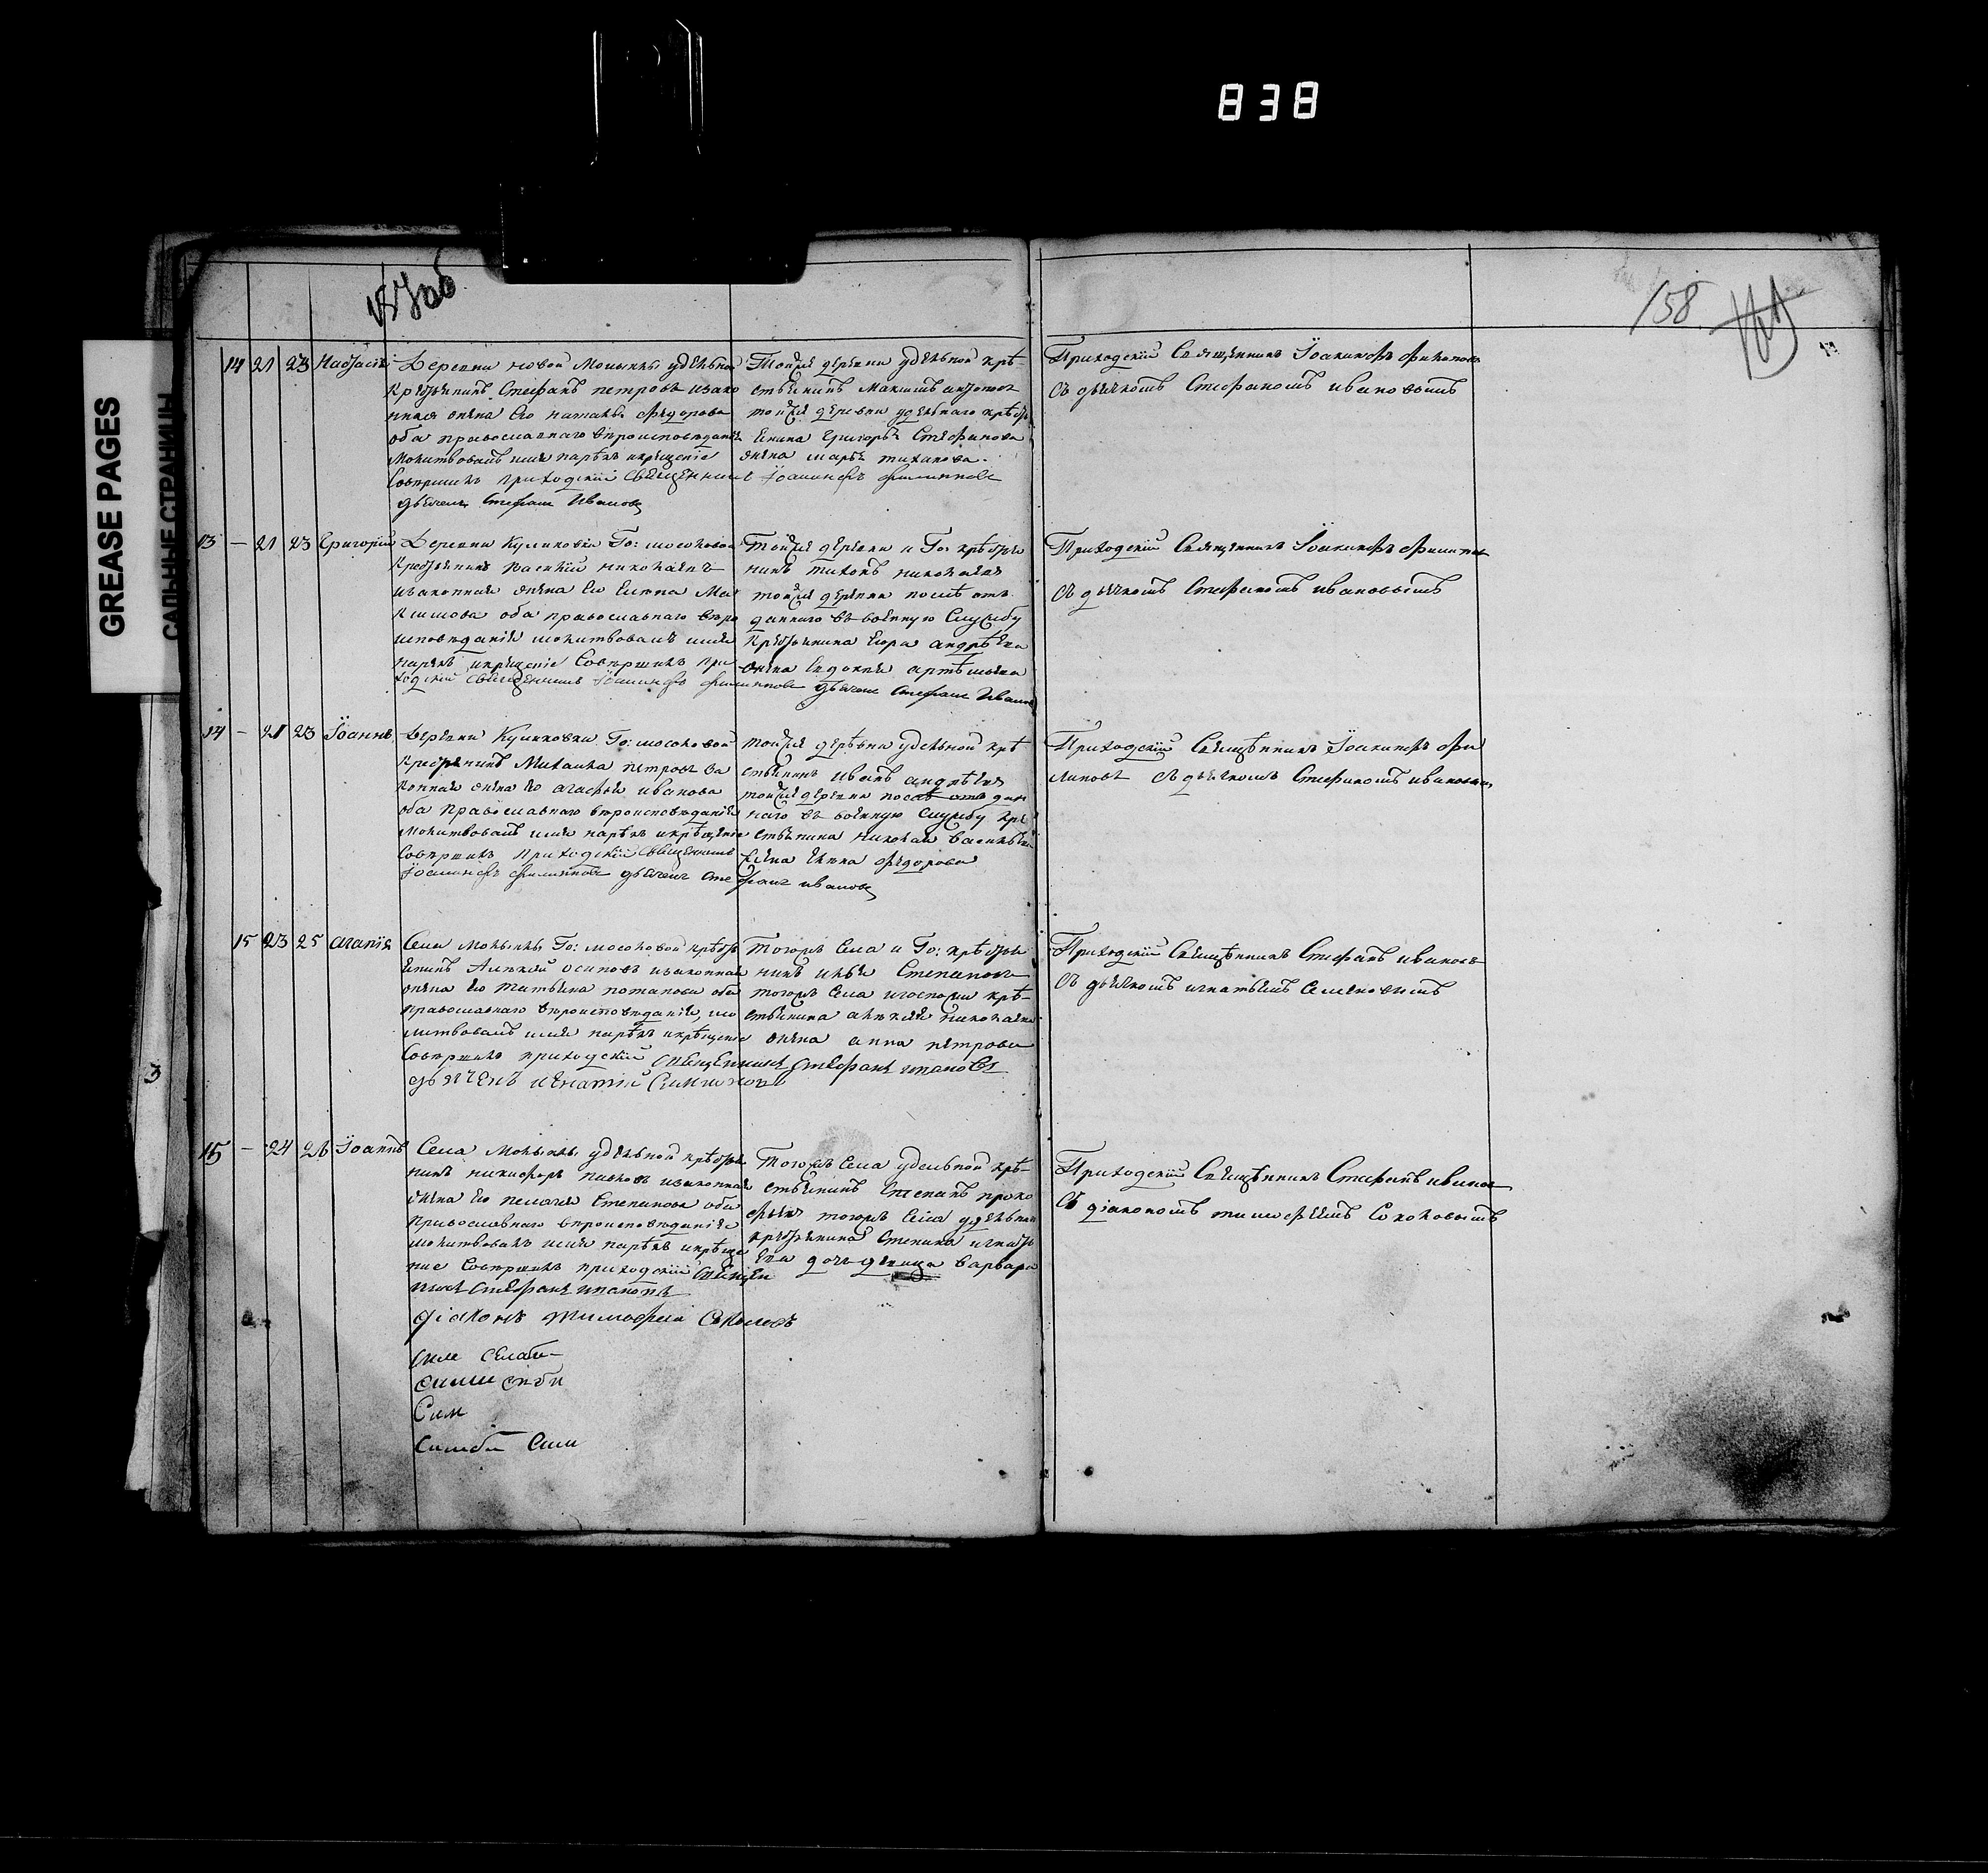 838
GREASE PAGES
САЛЬНЫЕ СТРАНИЦЫ
157об
158
14 21 23
Деревни новой удѣльной
Крестьянинъ Стефанъ петровъ изако
нная жена его наталья Федорова
оба православнаго вѣроисповѣданія
Молитвовалъ имя нарѣкъ икрещеніе
Совершилъ приходскій Священникъ Іоакинфъ филиповъ
дьячекъ Стефанъ Ивановъ
Тойже деревни удѣльной крѣ-
стьянинъ Максимъ
тойже деревни удѣльнаго крѣсть
янина Григорья Стефанова
жена марья тиханова
Приходскій Священникъ Іоакинфъ филиповъ
съ дьячкомъ Стефаномъ ивановымъ
13 — 21 23 Григорій
Деревни Куликовки Го: мосоловой
Крестьянинъ василій николаевъ
изаконная жена его Елена Ма
ксимова оба православнаго вѣро
исповѣданія молитвовалъ имя
нарекъ икрещеніе Совершилъ при
ходскій священникъ Іоакинфъ филиповъ дьячекъ Стефанъ Ивановъ
Тойже деревни и Го: крѣстья
нинъ тихонъ николаевъ
тойже деревни послѣ от
даннаго въ военную Службу
Крестьянина Егора андрѣева
жена Евдокия артѣмьева
Приходскій Священникъ Іоакинфъ филипов
съ дьячкомъ Стефаномъ ивановымъ
14 — 21 23 Іоаннъ
Деревни Куликовки Го: мосоловой
Крестьянинъ Михаила петровъ за
конная жена его агафья иванова
оба Православнаго вѣроисповѣданія
Молитвовалъ имя нарѣкъ икрѣщеніе
Совершилъ приходскій Священникъ
Іоакинфъ филиповъ дьячекъ Сте фанъ ивановъ
тойже дерѣвни удельной крѣ
стьянинъ иванъ андрѣевъ
тойже деревни послѣ отдан
наго въ военную Службу кре
стьянина николая васильева
жена Елена федорова
Приходскій Священникъ Іоакинфъ фи
липовъ съ дьячкомъ Стефаномъ ивановымъ
15 23 25 Агапія
Села Го: мосоловой крѣстья
янинъ Алексѣй осиповъ изаконная
жена его татьяна потапова оба
православнаго вѣроисповѣданія, мо
литвовалъ имя нарѣкъ икрѣщеніе
Совершилъ приходскій священникъ стефанъ ивановъ
дьячекъ игнатій Симионовъ
Тогожъ Села и Го: крѣстья
нинъ илья Степановъ
тогожъ Села игоспожи крѣ-
стьянина алексѣя николаева
жена анна петрова
Приходскій Священникъ Стефанъ ивановъ
съ дьячкомъ игнатьемъ Семеновымъ
15 — 24 26 Іоаннъ
Села удѣльной крѣстья
нинъ никифоръ павловъ изаконная
жена его пелагея Степанова оба
Православнаго вѣроисповѣданія
молитвовалъ имя нарѣкъ икрѣще
ніе Совершилъ приходскій Священ
никъ Стефанъ ивановъ
діаконъ тимофей Соколовъ
Тогожъ Села удельной крѣ-
стьянинъ Степанъ проко
фьевъ тогожъ Села удѣльнаго
крестьянина Степана игнать
ева дочь девица варвара
Приходскій Священникъ Стефанъ иванов
Съ діакономъ тимофеемъ Соколовымъ